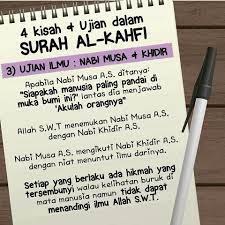 4 kisah 4 Ujian dalam
SURAH AL-KAHFI
3) UJIAN ILMU : NABI MUSA & KHIDIR
Apabila Nabi Musa A.S. ditanya:
"Siapakah manusia paling pandai di
muka bumi ini?" lantas dia menjawab
"Akulah orangnya"
Allah S.W.T menemukan Nabi Musa A.S.
dengan Nabi Khidir A.S.
Nabi Musa A.S. mengikuti Nabi Khidir A.S.
dengan niat menuntut ilmu darinya.
Setiap yang berlaku ada hikmah yang
tersembunyi walau kelihatan buruk di
mata manusia namun tidak dapat
menandingi ilmu Allah S.W.T.